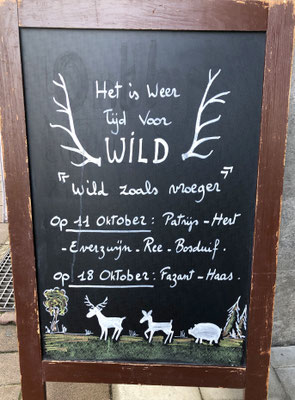 Het is weer
Tijd voor
WILD
"Wild zoals vroeger"
Op 11 Oktober: Patrijs - Hert
- Everzwijn - Ree - Bosduif.
Op 18 Oktober: Fazant - Haas.